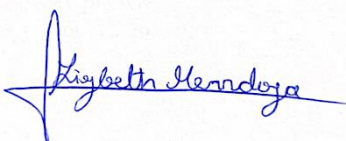 Lizbeth Mendoza